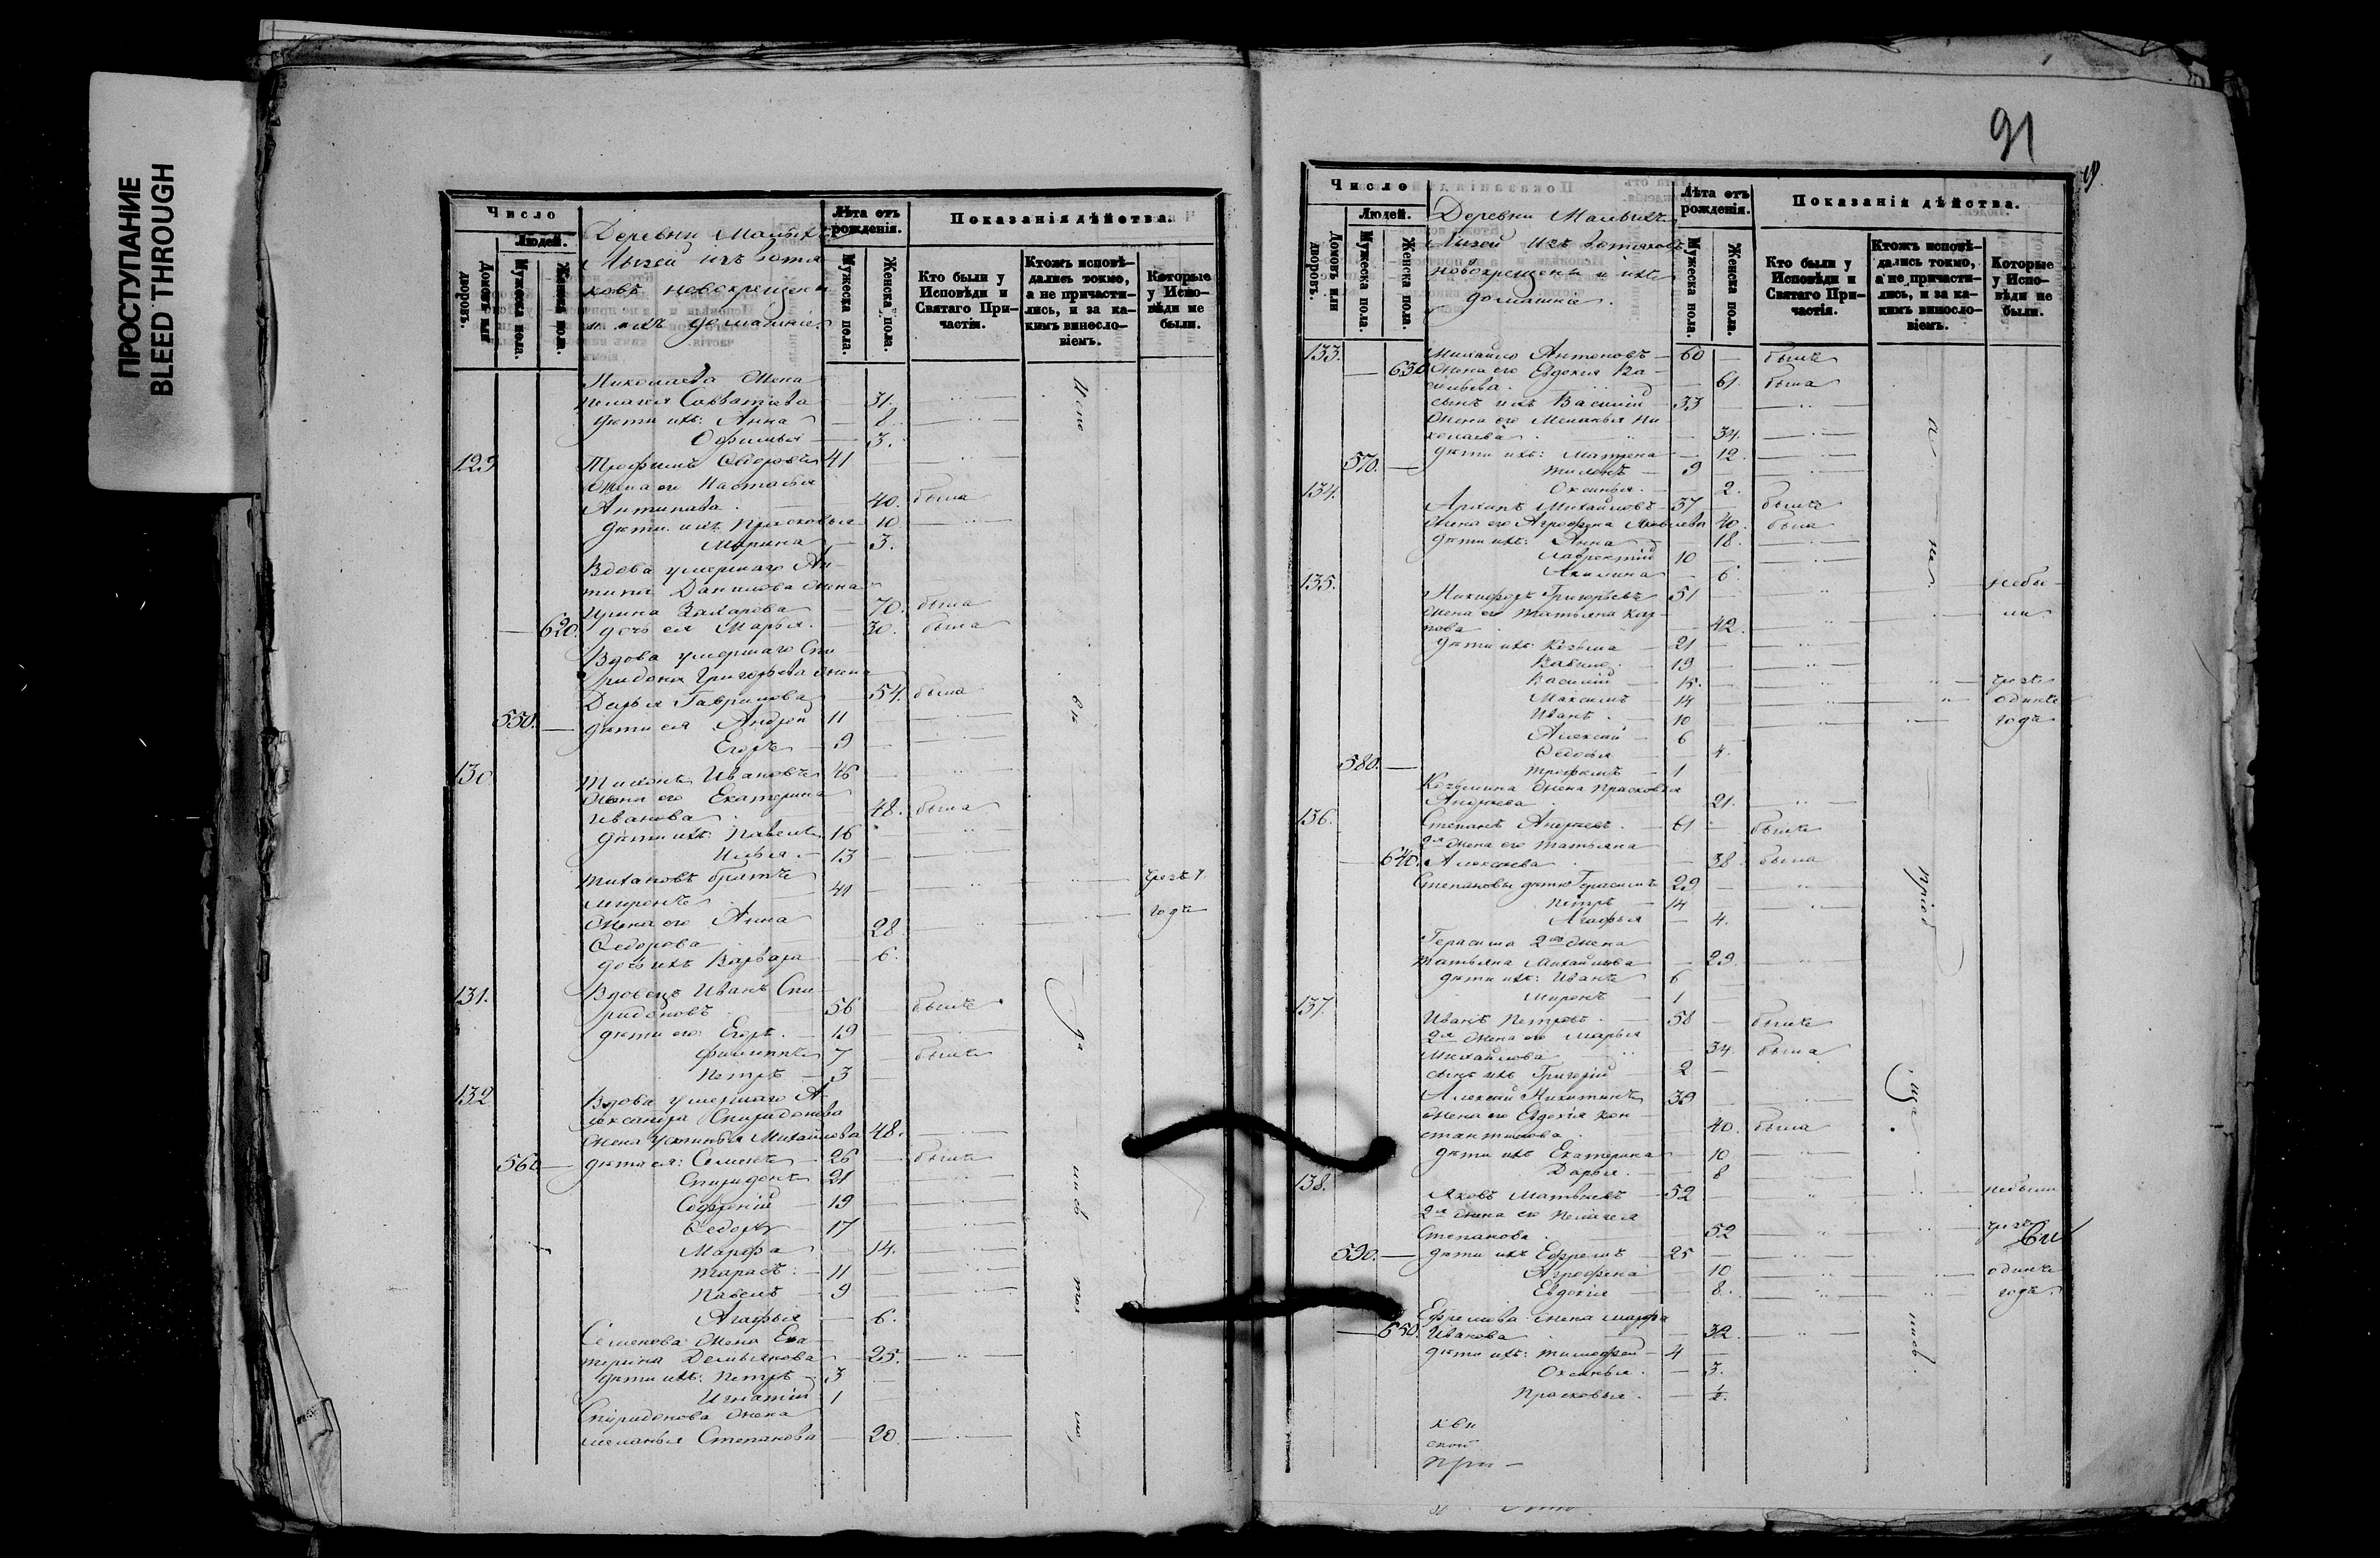 ПРОСТУПАНИЕ
BLEED THROUGH
Число
Людей.
Домовъ или дворовъ.
Мужеска пола.
Женска пола.
Деревни Малыхъ
Лызей изъ вотя
ковъ новокрещены
и ихъ домашніе.
Лѣта отъ рожденія.
Мужеска пола.
Женска пола.
Показанія дѣйства.
Кто были у Исповѣди и Святаго Причастія.
Ктожъ исповѣдались токмо, а не причастились, и за какимъ винословіемъ.
Которые у Исповѣди не были.
Николаева жена
Пелагея Савватиева 31.
Дѣти ихъ: Анна 8
Офимья 3.
129 Трофимъ Ѳедоровъ 41
Жена его Настасья
Антипава. 40. была
Дѣти ихъ: Прасковья 10.
Марина 3.
Вдова умершаго Ан-
типа Данилова жена
Ирина Захарова 70. была
620. дочь ея Марья. 30. была
Вдова умершаго Спи-
ридона Григорьева жена
Дарья Гаврилова 54. была
550. дѣти ея Андрей 11
Егоръ 9
130 Тихонъ Ивановъ 46
Жена его Екатерина
Иванова. 48. была
Дѣти ихъ: Павелъ 16
Илья. 13
Тихоновъ братъ
Миронъ. 41 чрезъ 1
Жена его Анна годъ
Ѳедорова 28
дочь ихъ Варвара 6.
131. Вдовецъ Иванъ Спи-
ридоновъ 56 былъ
дѣти его Егоръ. 19
Филиппъ 7 былъ
Петръ 3
132 Вдова умершаго А-
лександра Спиридонова
жена Устинья Михайлова 48.
560 дѣти ея: Семенъ 26 былъ
Спиридонъ 21
Софроній 19
Ѳедоръ 17
Марфа 14.
Тарасъ. 11
Павелъ 9
Агафья 6.
Семенова жена Ека-
терина Демьянова 25.
дѣти ихъ: Петръ 3
Игнатій 1
Спиридонова жена
Меланья Степанова 20.
91
Число
Людей.
Домовъ или дворовъ.
Мужеска пола.
Женска пола.
Деревни Малыхъ
Лызей изъ вотяковъ
новокрещены и ихъ
домашніе.
Лѣта отъ рожденія.
Мужеска пола.
Женска пола.
Показанія дѣйства.
Кто были у Исповѣди и Святаго Причастія.
Ктожъ исповѣдались токмо, а не причастились, и за какимъ винословіемъ.
Которые у Исповѣди не были.
133. Михайло Антоновъ 60 былъ
630 Жена его Евдокия Ва-
сильева. 61. была
сынъ ихъ Василій 33
Жена его Меланья Ни-
колаева. 34.
дѣти ихъ: Матрена 12.
570. Тихонъ 9
Оксинья. 2.
134. Архипъ Михайловъ 37 былъ
Жена его Агрофена Яковлева 40. была
дѣти ихъ: Анна 18.
Лаврентій 10
Акилина 6.
135. Никифоръ Григорьевъ 51 небы-
Жена его Татьяна Кар- ли
пова 42.
дѣти ихъ: Козьма 21
Вавило. 19
Василій 15. чрезъ
Максимъ 14 одинъ
Иванъ. 10 годъ
Алексей 6
Ѳедосья 4.
580. Трофимъ 1
Козьмина жена Прасковья
Андреева 21.
136. Степанъ Андреевъ. 61 былъ
2я жена его Татьяна
640. Алексеева 38. была
Степановы дѣти Герасимъ 29
Петръ 14
Агафья 4.
Герасима 2ая жена
Татьяна Михайлова 29.
дѣти ихъ: Иванъ 6
Миронъ 1
137. Иванъ Петровъ. 58 былъ
2я жена его Марья
Михайлова 34. была
сынъ ихъ Григорій 2
Алексей Никитинъ 39
Жена его Евдокія Кон-
стантинова. 40. была
дѣти ихъ Екатерина 10
Дарья. 8
138. Яковъ Матвеевъ 52 небыли
2я жена его Пелагея
Степанова. 52 чрезъ
590. дѣти ихъ Ефремъ 25
Агрофена 10 одинъ
Евдокія 8. годъ.
Ефремова жена Марфа
650. Иванова 32.
дѣти ихъ: Тимофей 4
Оксинья. 3.
Прасковья. ½.
При-